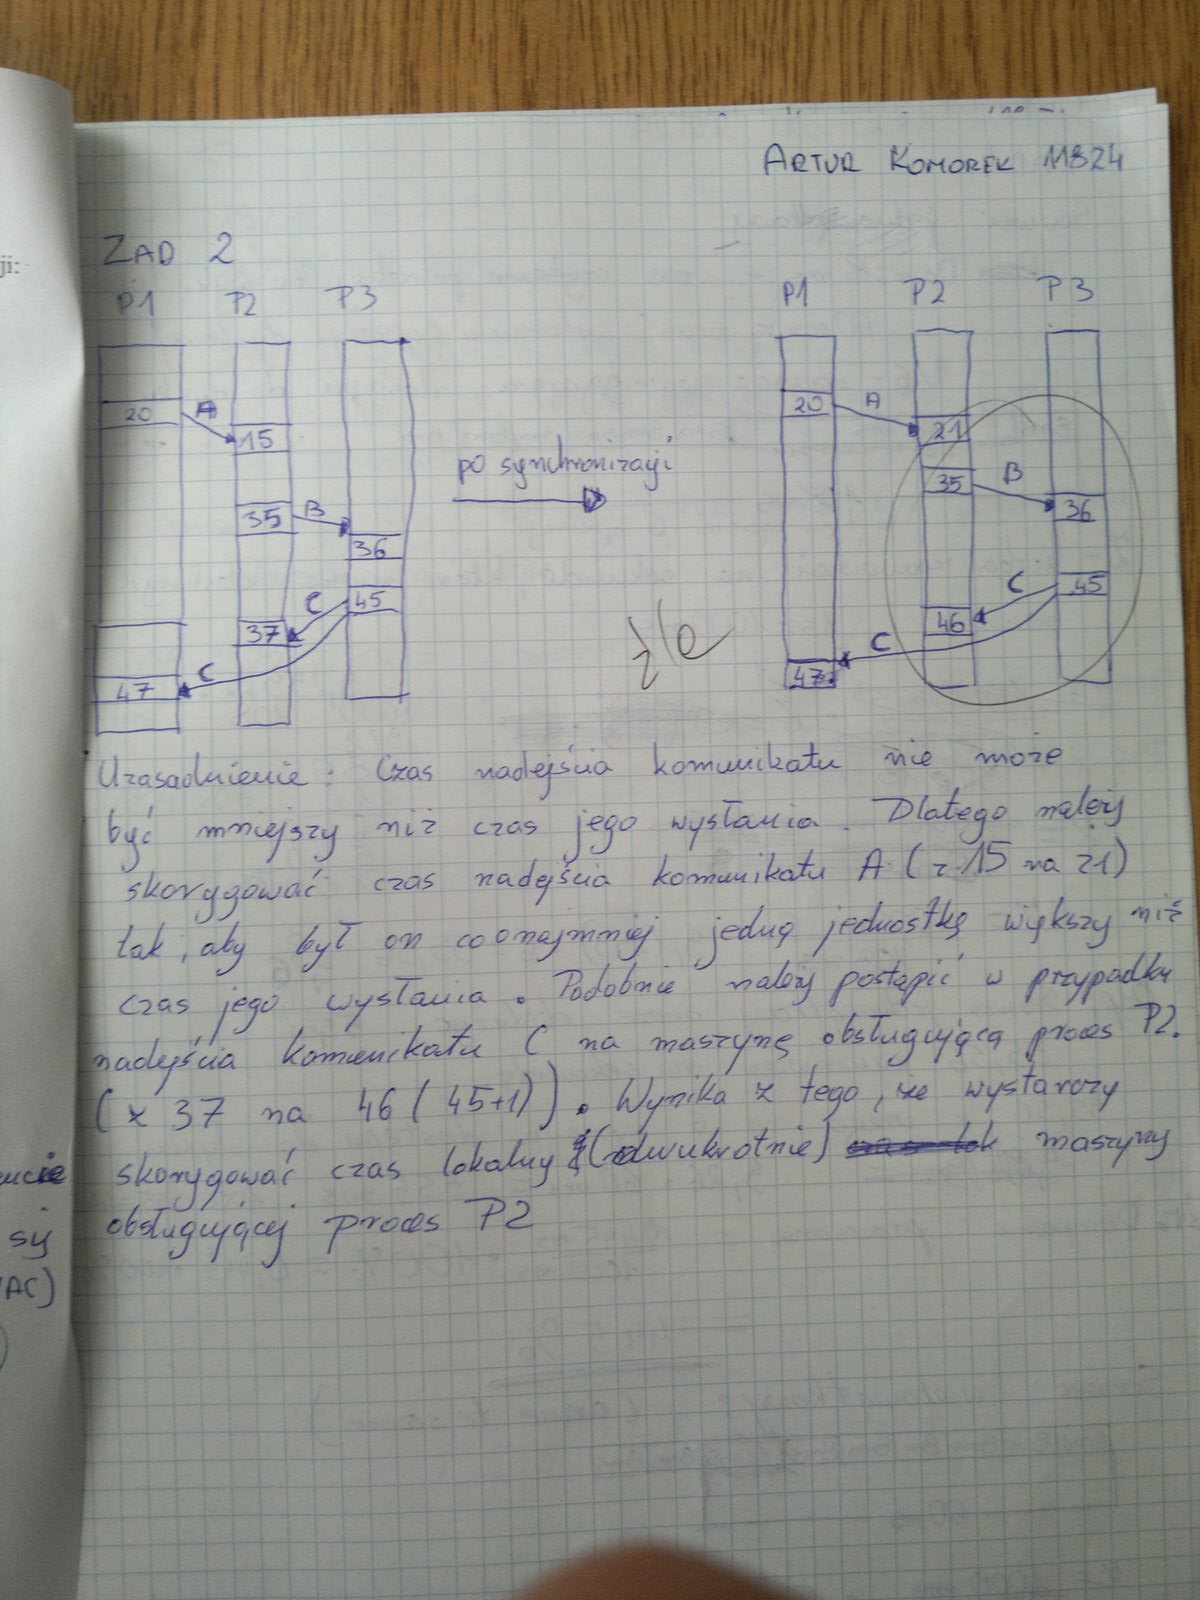 ji:
ARTUR KOMOREK 11824
ZAD 2
P1 P2 P3
20 A 15
35 B 36
45 C 37
C 47
po synchronizacji
P1 P2 P3
20 A 21
35 B 36
45 C 46
C 47
źle
Uzasadnienie: Czas nadejścia komunikatu nie może
być mniejszy niż czas jego wysłania. Dlatego należy
skorygować czas nadejścia komunikatu A (z 15 na 21)
tak, aby był on conajmniej jedną jednostkę większy niż
czas jego wysłania. Podobnie należy postąpić w przypadku
nadejścia komunikatu C na maszynę obsługującą proces P2.
(z 37 na 46 (45+1)). Wynika z tego, że wystarczy
skorygować czas lokalny (dwukrotnie) maszyny
obsługującej proces P2
sij
AC)